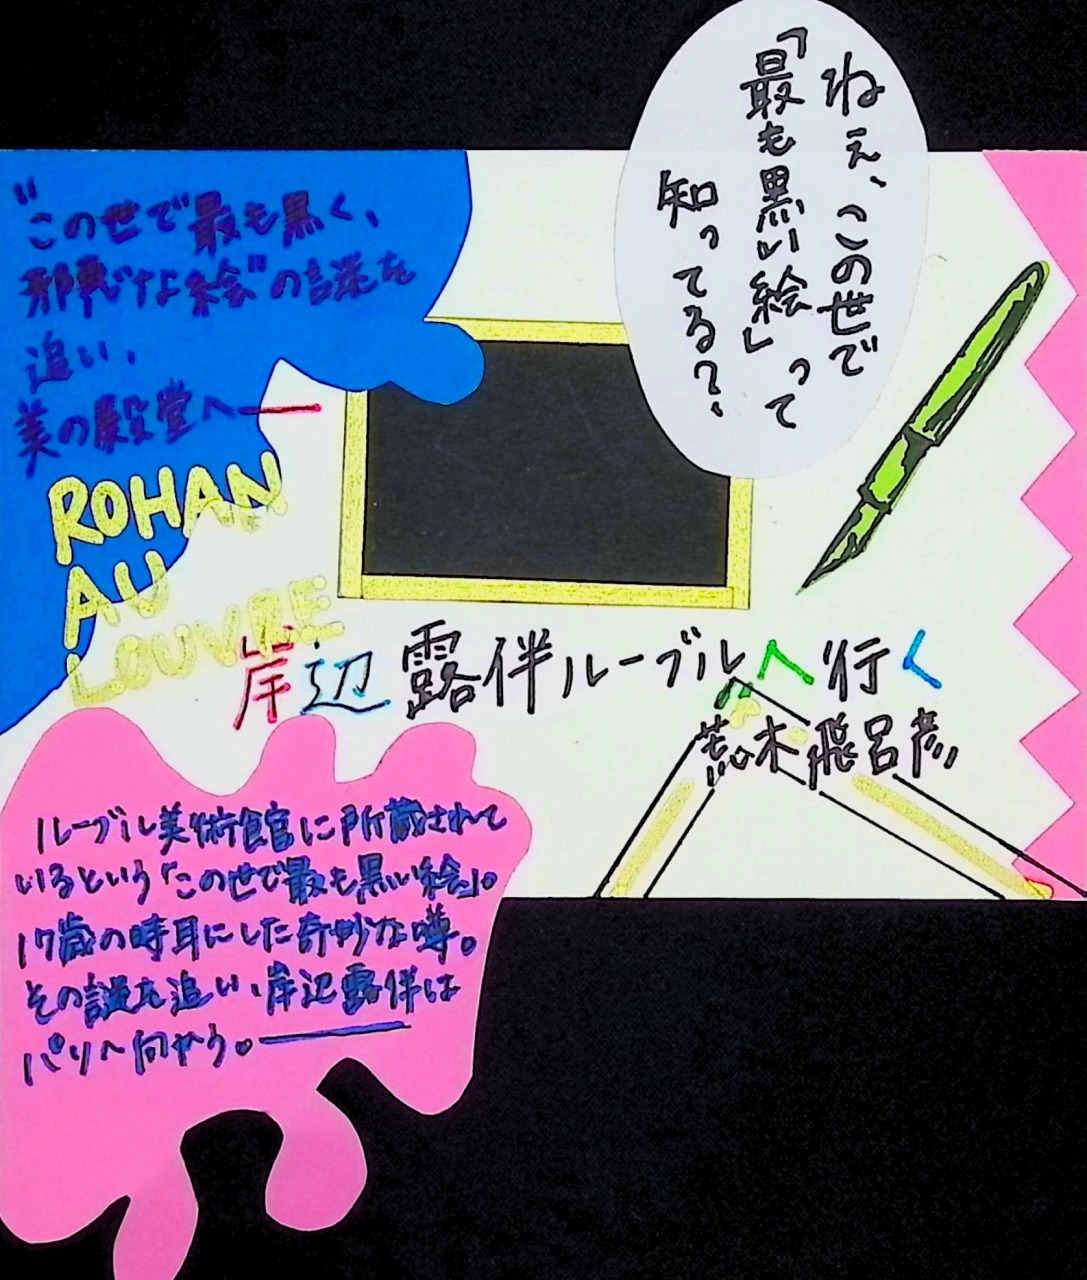 ねぇ、この世で
「最も黒い絵」って
知ってる?、
"この世で最も黒く、
邪悪な絵"の謎を
追い、
美の殿堂へ―
ROHAN
AU
LOUVRE
岸辺露伴ルーブルへ行く
荒木飛呂彦
ルーブル美術館に所蔵されて
いるという「この世で最も黒い絵」。
17歳の時耳にした奇妙な噂。
その謎を追い、岸辺露伴は
パリへ向かう。―